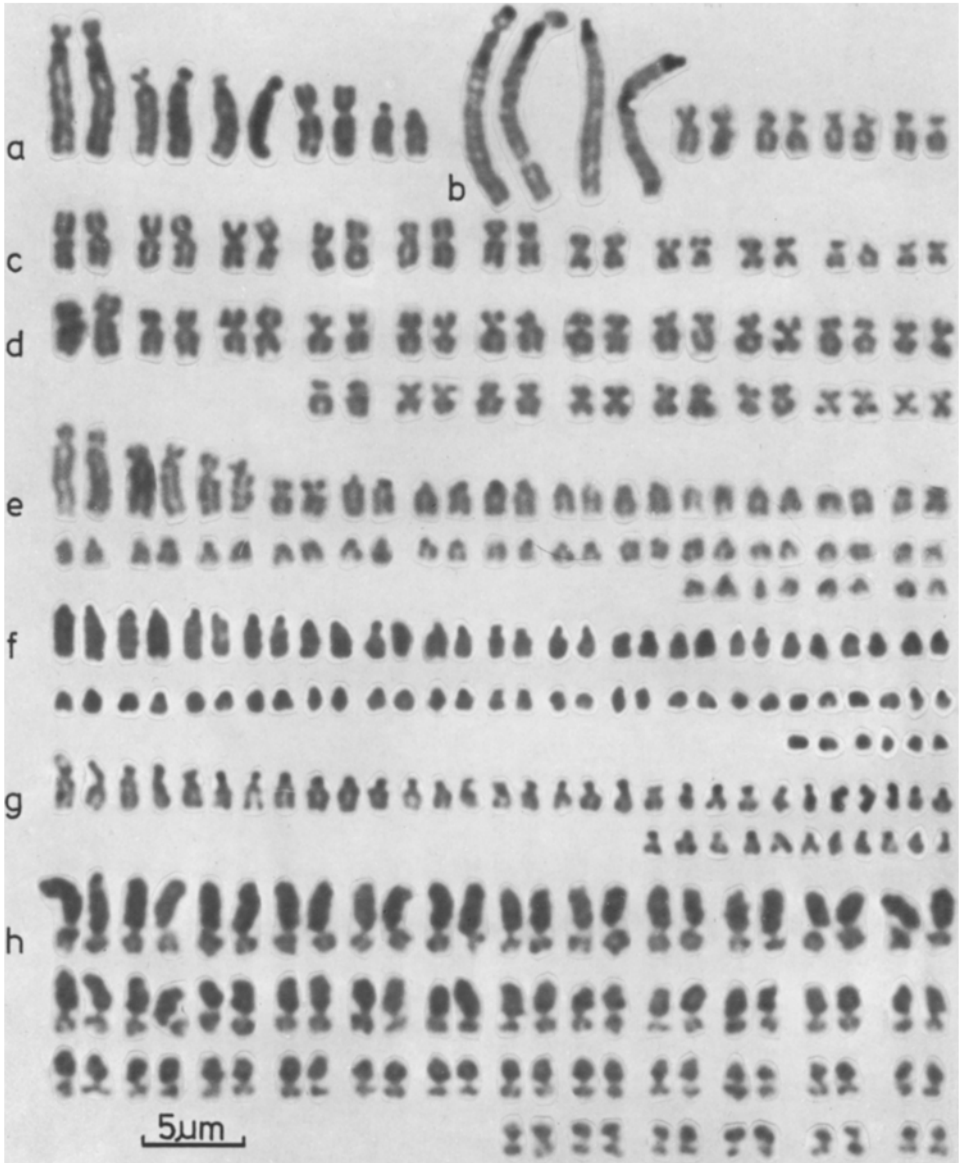 a
b
c
d
e
f
g
h
5µm